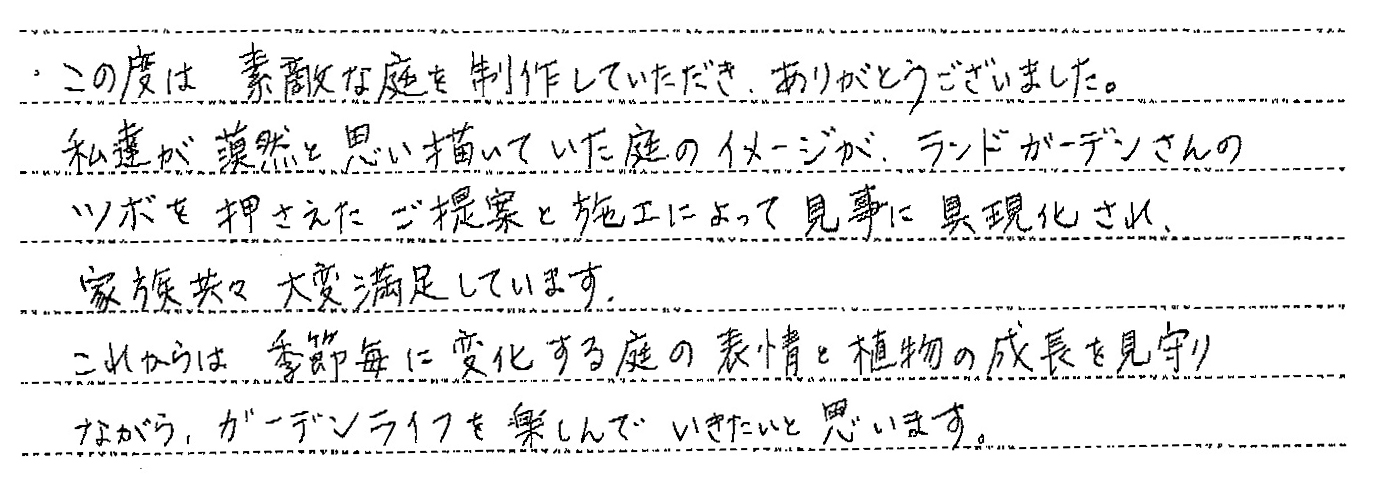 この度は 素敵な庭を制作していただき、ありがとうございました。
私達が漠然と思い描いていた庭のイメージが、ランドガーデンさんの
ツボを押さえたご提案と施工によって見事に具現化され、
家族共々大変満足しています。
これからは 季節毎に変化する庭の表情と植物の成長を見守り
ながら、ガーデンライフを楽しんでいきたいと思います。